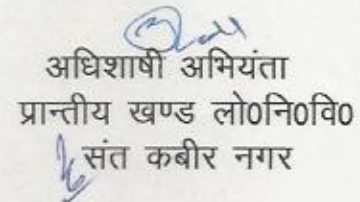 अधिशाषी अभियंता
प्रान्तीय खण्ड लो0नि0वि0
संत कबीर नगर